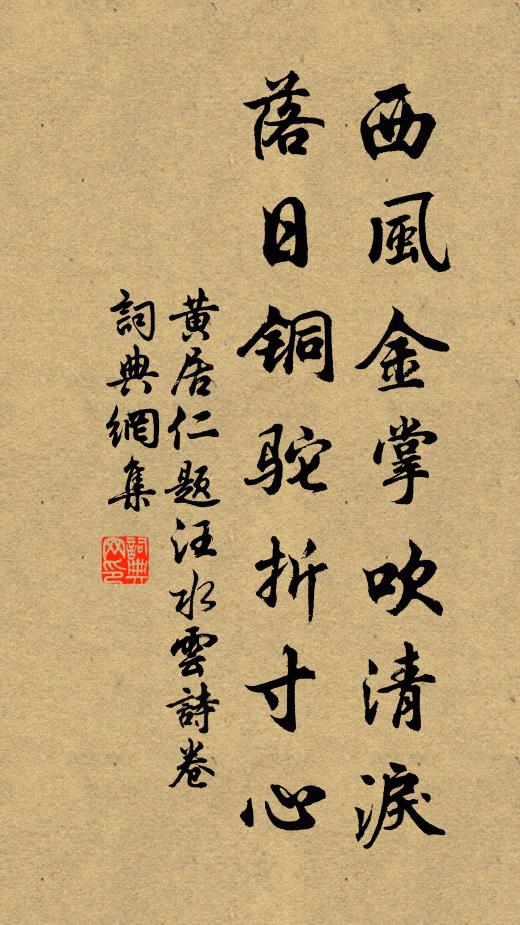 西風金掌吹清淚
落日铜駝折寸心
黄居仁题汪水雲詩卷
詞典網集
詞典网印